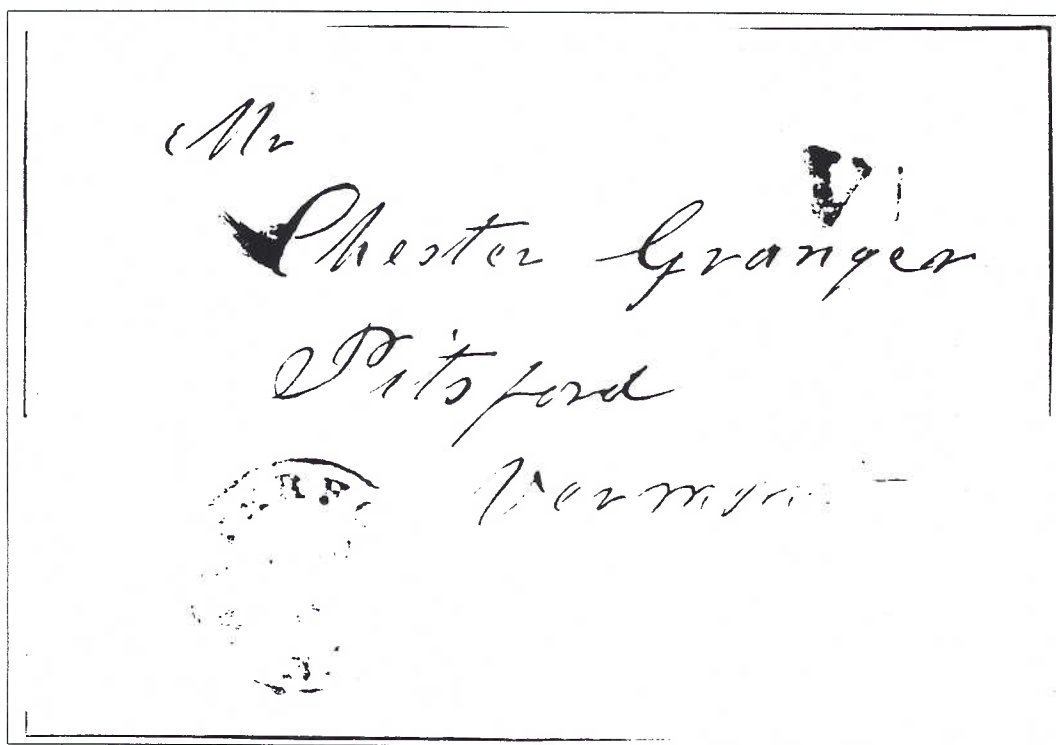 Mr
Chester Granger
Pitsford
Vermont